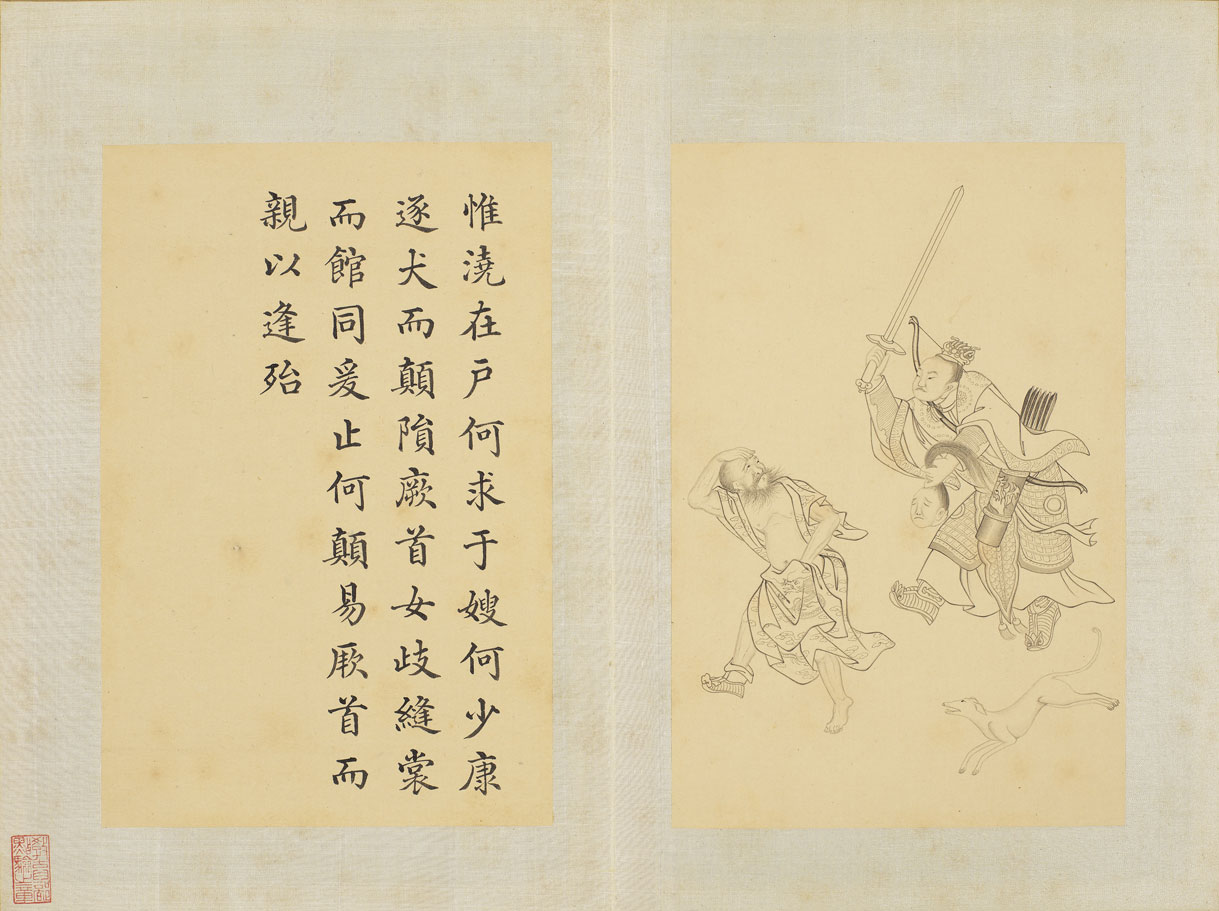 惟澆在戶何求于嫂何少康
逐犬而顛隕厥首女歧縫裳
而館同爰止何顛易厥首而
親以逢殆
教育部
點驗之章